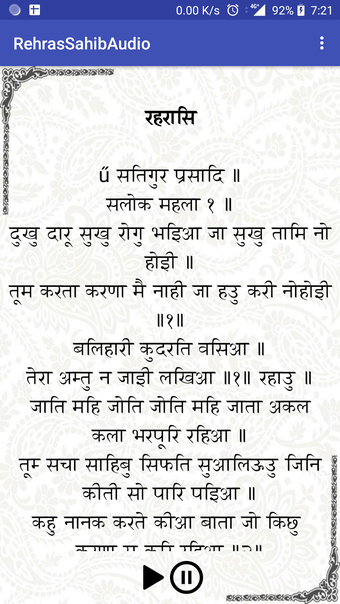 0.00 K/s 4G+ 92% 7:21
RehrasSahibAudio
रहरासि
ű सतिगुर प्रसादि ॥
सलोक महला १ ॥
दुखु दारू सुखु रोगु भइिआ जा सुखु तामि नो
होइी ॥
तूम करता करणा मै नाही जा हउु करी नोहोइी
॥१॥
बलिहारी कुदरति वसिआ ॥
तेरा अम्तु न जाइी लखिआ ॥१॥ रहाउु ॥
जाति महि जोति जोति महि जाता अकल
कला भरपूरि रहिआ ॥
तूम्र सचा साहिबु सिफति सुआलिऊउु जिनि
कीती सो पारि पइिआ ॥
कहु नानक करते कीआ बाता जो किछु